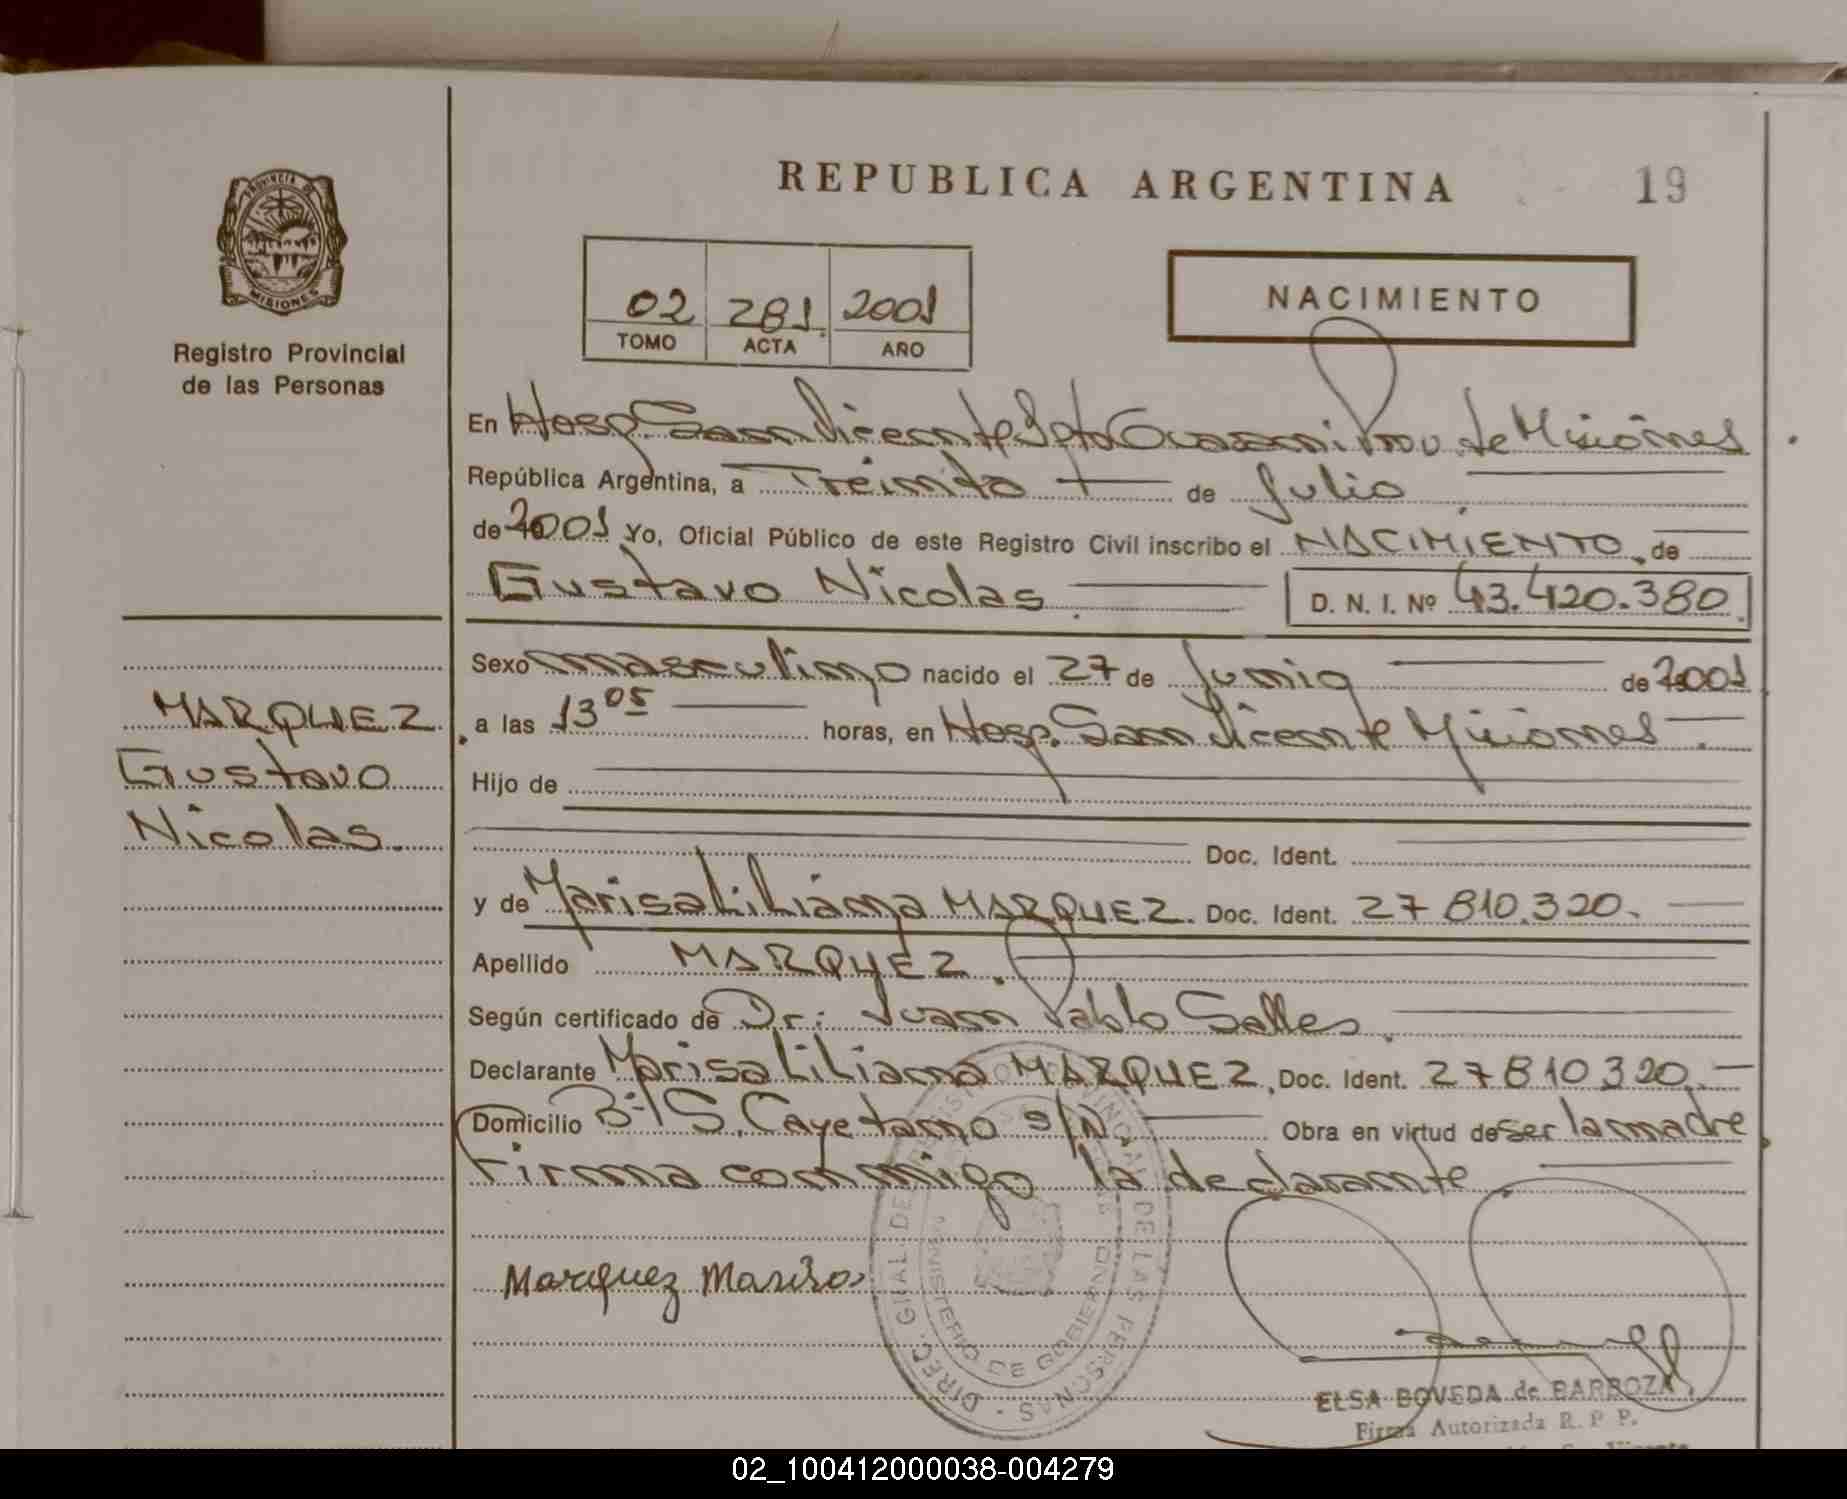 REPUBLICA ARGENTINA 19
PROVINCIA DE
MISIONES
Registro Provincial
de las Personas
02 281 2001
TOMO ACTA AÑO
NACIMIENTO
En Hosp. San Vicente Dpto Guarani Prov. de Misiones
República Argentina, a Treinta de Julio
de 2001 Yo, Oficial Público de este Registro Civil inscribo el NACIMIENTO de
Gustavo Nicolas D. N. I. Nº 43.420.380
Sexo masculino nacido el 27 de Junio de 2001
a las 13 05 horas, en Hosp. San Vicente Misiones
Hijo de
Doc. Ident.
y de Marisa Liliana MARQUEZ. Doc. Ident. 27 810.320.
Apellido MARQUEZ.
Según certificado de Dr: Juan Pablo Salles.
Declarante Marisa Liliana MARQUEZ. Doc. Ident. 27 810 320.
Domicilio Bº S. Cayetano s/N. Obra en virtud de ser la madre
Firma conmigo la declarante.
MARQUEZ
Gustavo
Nicolas.
Marquez Marisa
DIREC. GRAL. DE REGISTRO PROVINCIAL DE LAS PERSONAS
MINISTERIO DE GOBIERNO
ELSA BOVEDA de BARBOZA
Firma Autorizada R. P. P.
02_100412000038-004279